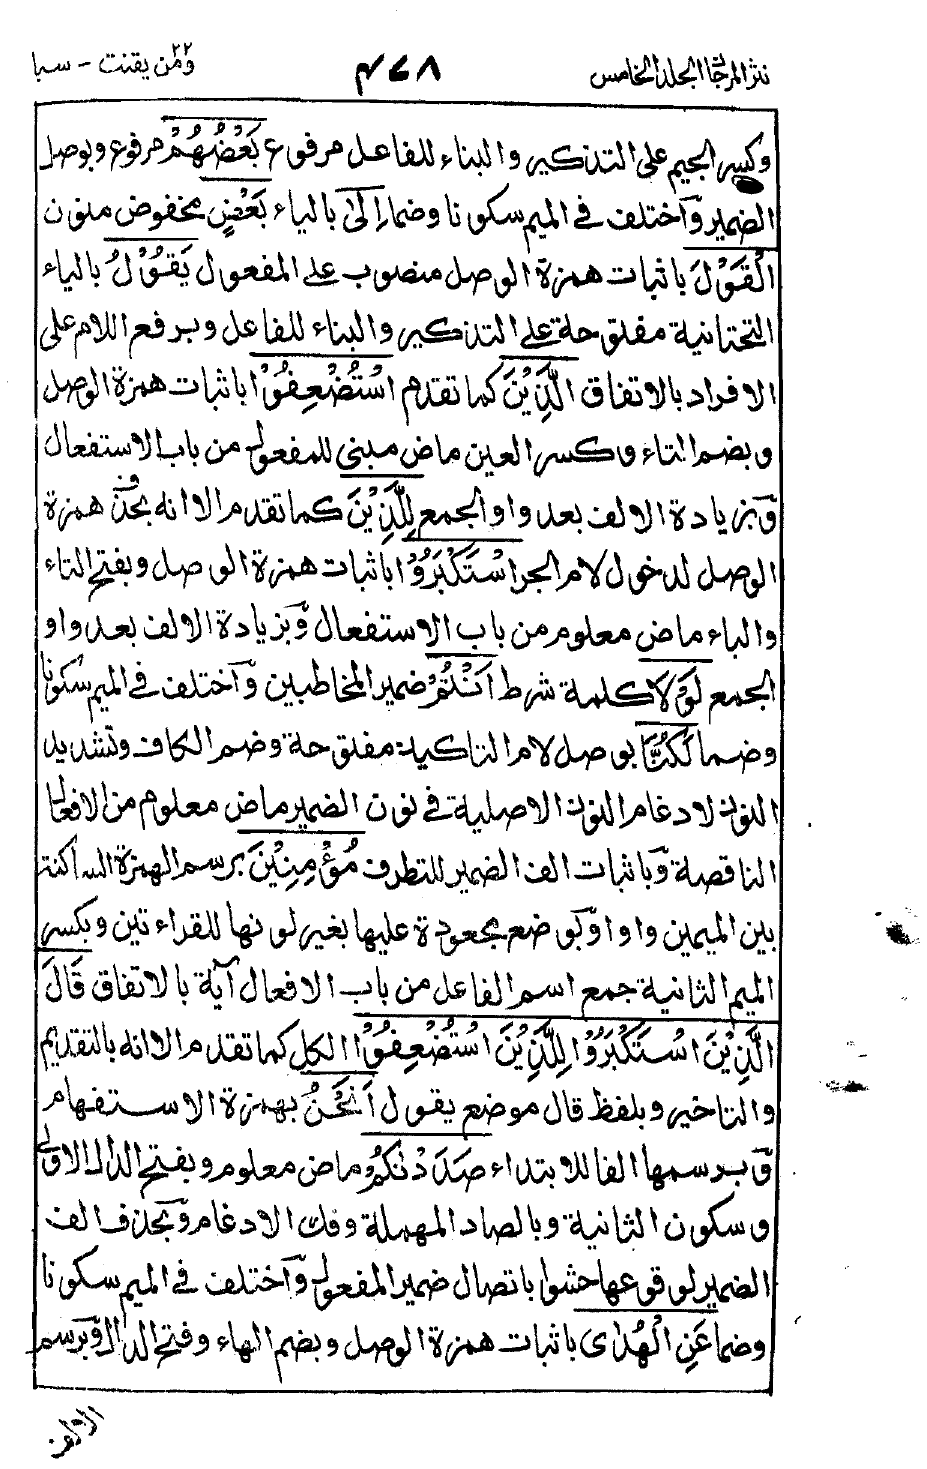 نثر المرجان المجلد الخامس ٤٦٨ ومن يقنت ٢٢ - سبا
وكسر الجيم على التذكير والبناء للفاعل مرفوع بَعْضُهُمْ مرفوع وبوصل
الضمير وَّاختلف في الميم سكونا وضما اِلٰى بالياء بَعْضٍ مخفوض منون
الْقَوْلَ باثبات همزة الوصل منصوب على المفعول يَقُوْلُ بالياء
التحتانية مفتوحة على التذكير والبناء للفاعل وبرفع اللام على
الافراد بالاتفاق الَّذِيْنَ كما تقدم اسْتُضْعِفُوْا باثبات همزة الوصل
وبضم التاء وكسر العين ماض مبني للمفعول من باب الاستفعال
وَّبزيادة الالف بعد واو الجمع لِلَّذِيْنَ كما تقدم الا انه بحذف همزة
الوصل لدخول لام الجر اسْتَكْبَرُوْا باثبات همزة الوصل وبفتح التاء
والباء ماض معلوم من باب الاستفعال وَّبزيادة الالف بعد واو
الجمع لَوْلَا كلمة شرط اَنْتُمْ ضمير المخاطبين وَّاختلف في الميم سكونا
وضما لَكُنَّا بوصل لام التاكيد مفتوحة وضم الكاف وتشديد
النون لادغام النون الاصلية في نون الضمير ماض معلوم من الافعال
الناقصة وَّباثبات الف الضمير للتطرف مُؤْمِنِيْنَ برسم الهمزة الساكنة
بين الميمين واوا وَّبوضع مجعودة عليها بغير لونها للقراءتين وبكسر
الميم الثانية جمع اسم الفاعل من باب الافعال آية بالاتفاق قَالَ
الَّذِيْنَ اسْتَكْبَرُوْا لِلَّذِيْنَ اسْتُضْعِفُوْا الكل كما تقدم الا انه بالتقديم
والتاخير وبلفظ قال موضع يقول اَنَحْنُ بهمزة الاستفهام
وَّبرسمها الفا للابتداء صَدَدْنٰكُمْ ماض معلوم وبفتح الدال الاولى
وسكون الثانية وبالصاد المهملة وفك الادغام وَّبحذف الف
الضمير لوقوعها حشوا باتصال ضمير المفعول وَّاختلف في الميم سكونا
وضما عَنِ الْهُدٰى باثبات همزة الوصل وبضم الهاء وفتح الدال وَّبرسم
الالف